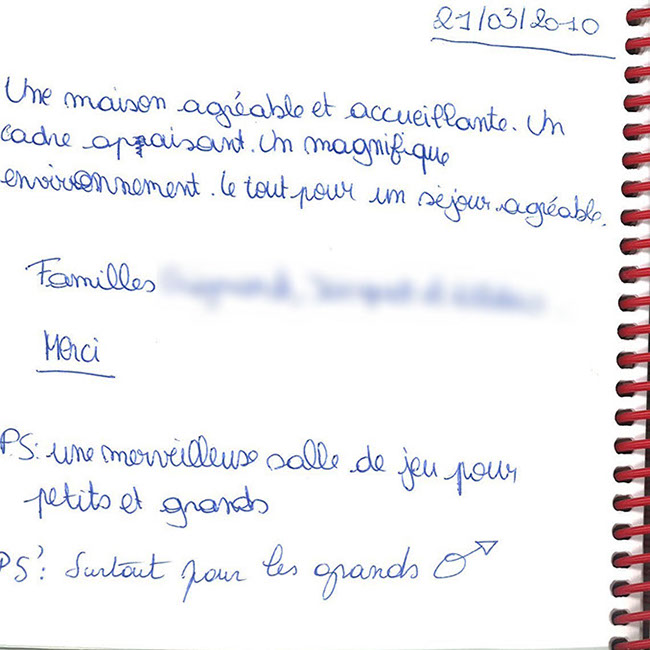 21/03/2010
Une maison agréable et accueillante. Un
cadre appaisant. Un magnifique
environnement. Le tout pour un séjour agréable.
Familles
Merci
PS: une merveilleuse salle de jeu pour
petits et grands
PS': Surtout pour les grands ♂